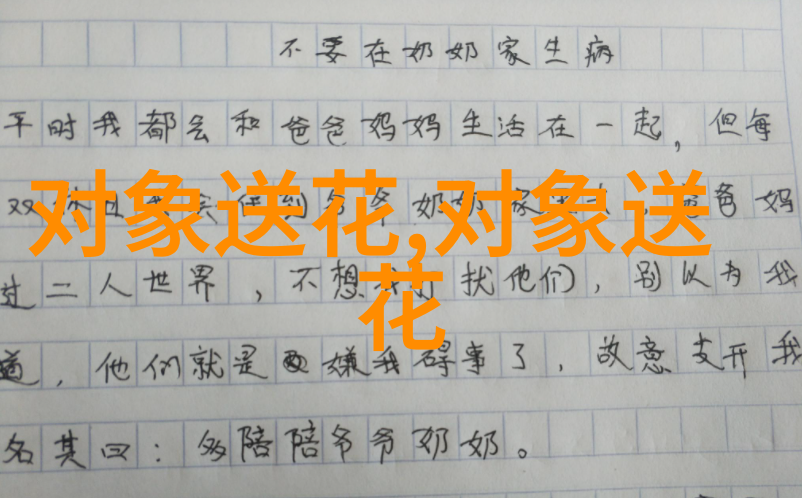 不要在奶奶家生病
平时我都会和爸爸妈妈生活在一起，但每
双休 奶奶家 爸妈
对象送花,对象送
花
过二人世界，不想我打扰他们，别以为我
道，他们就是嫌我碍事了，故意支开我
名其曰：多陪陪爷爷奶奶。